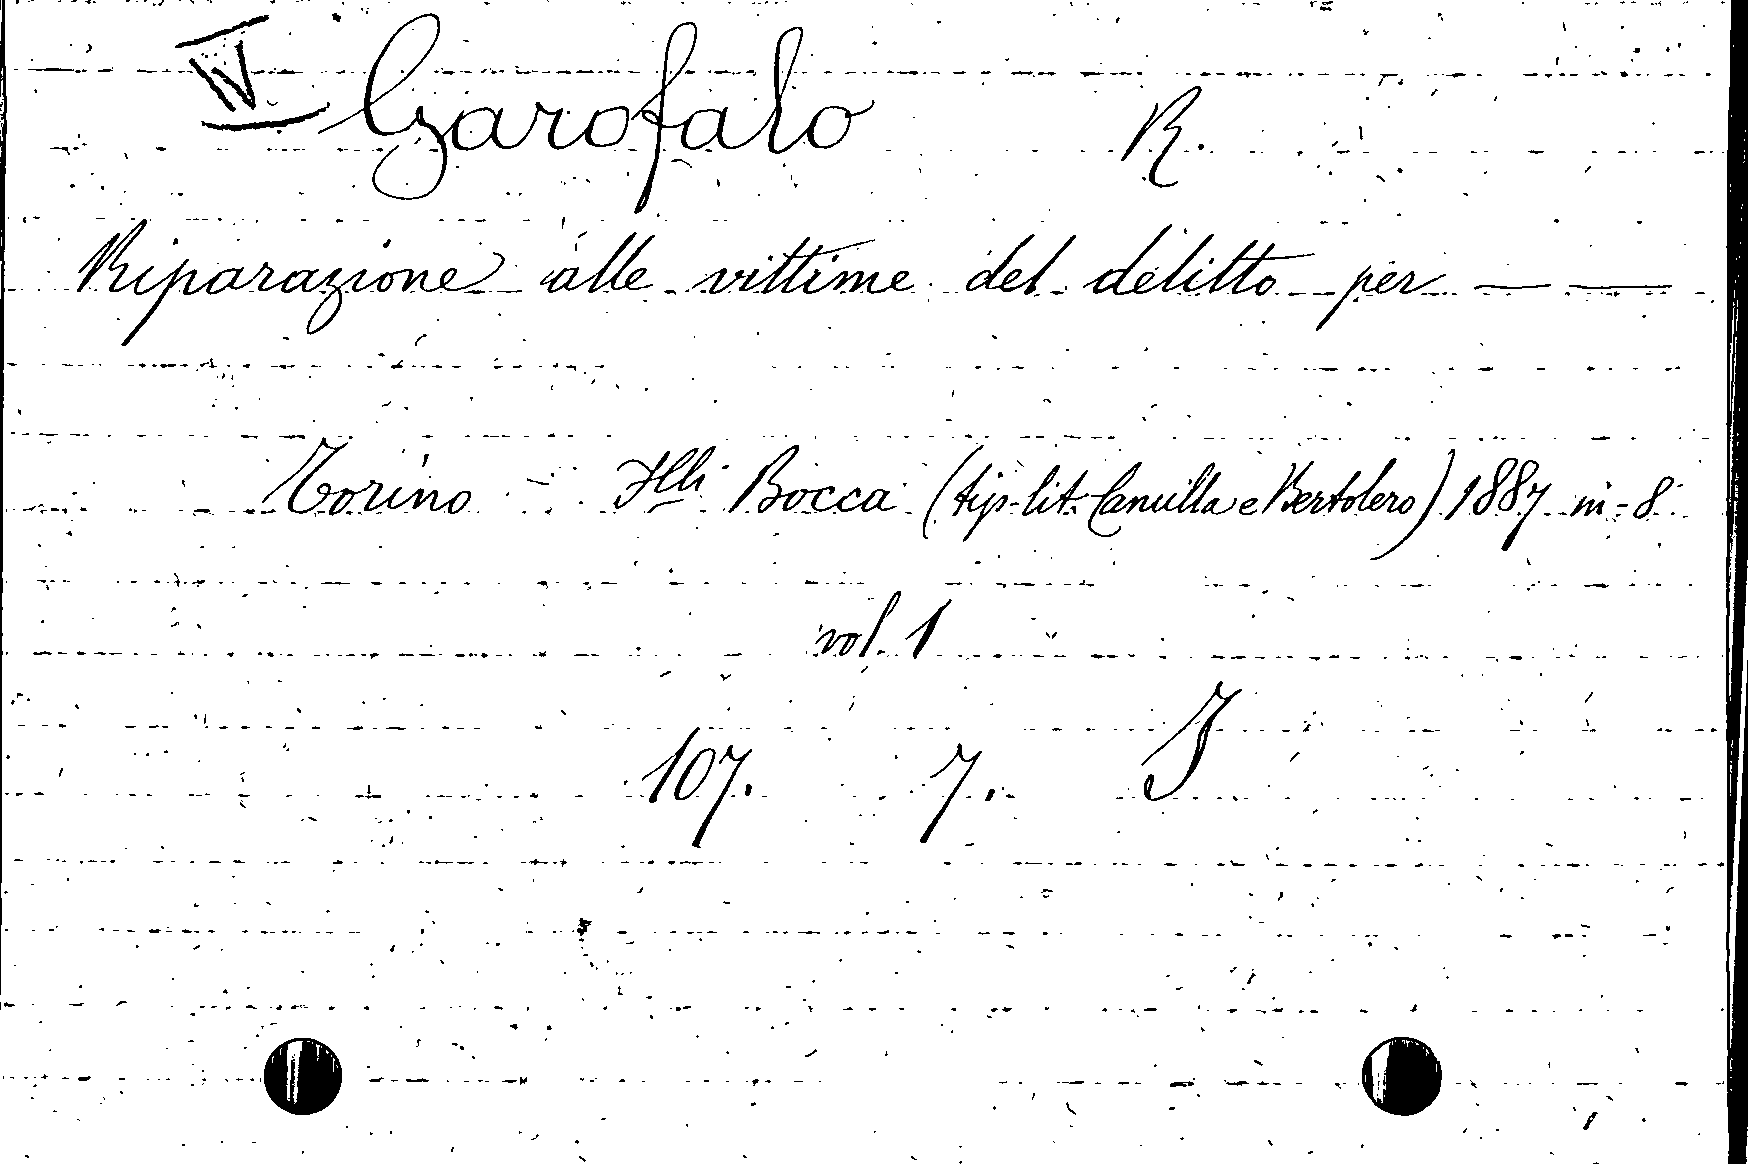 IV Garofalo R.
Riparazione alle vittime del delitto per — —
Torino - Flli Bocca (tip-lit. Camilla e Bertolero) 1887 in-8°
vol. 1
107. 7. I